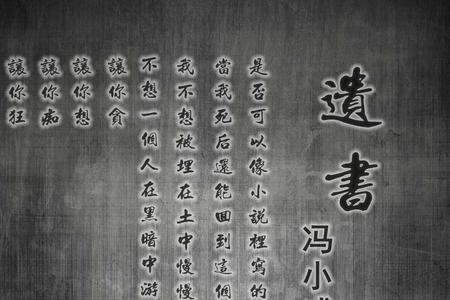 遺書
冯小
是否可以像小說裡寫的
當我死后還能回到這個
我不想被埋在土中慢慢
不想一個人在黑暗中游
讓你貪
讓你想
讓你痴
讓你狂